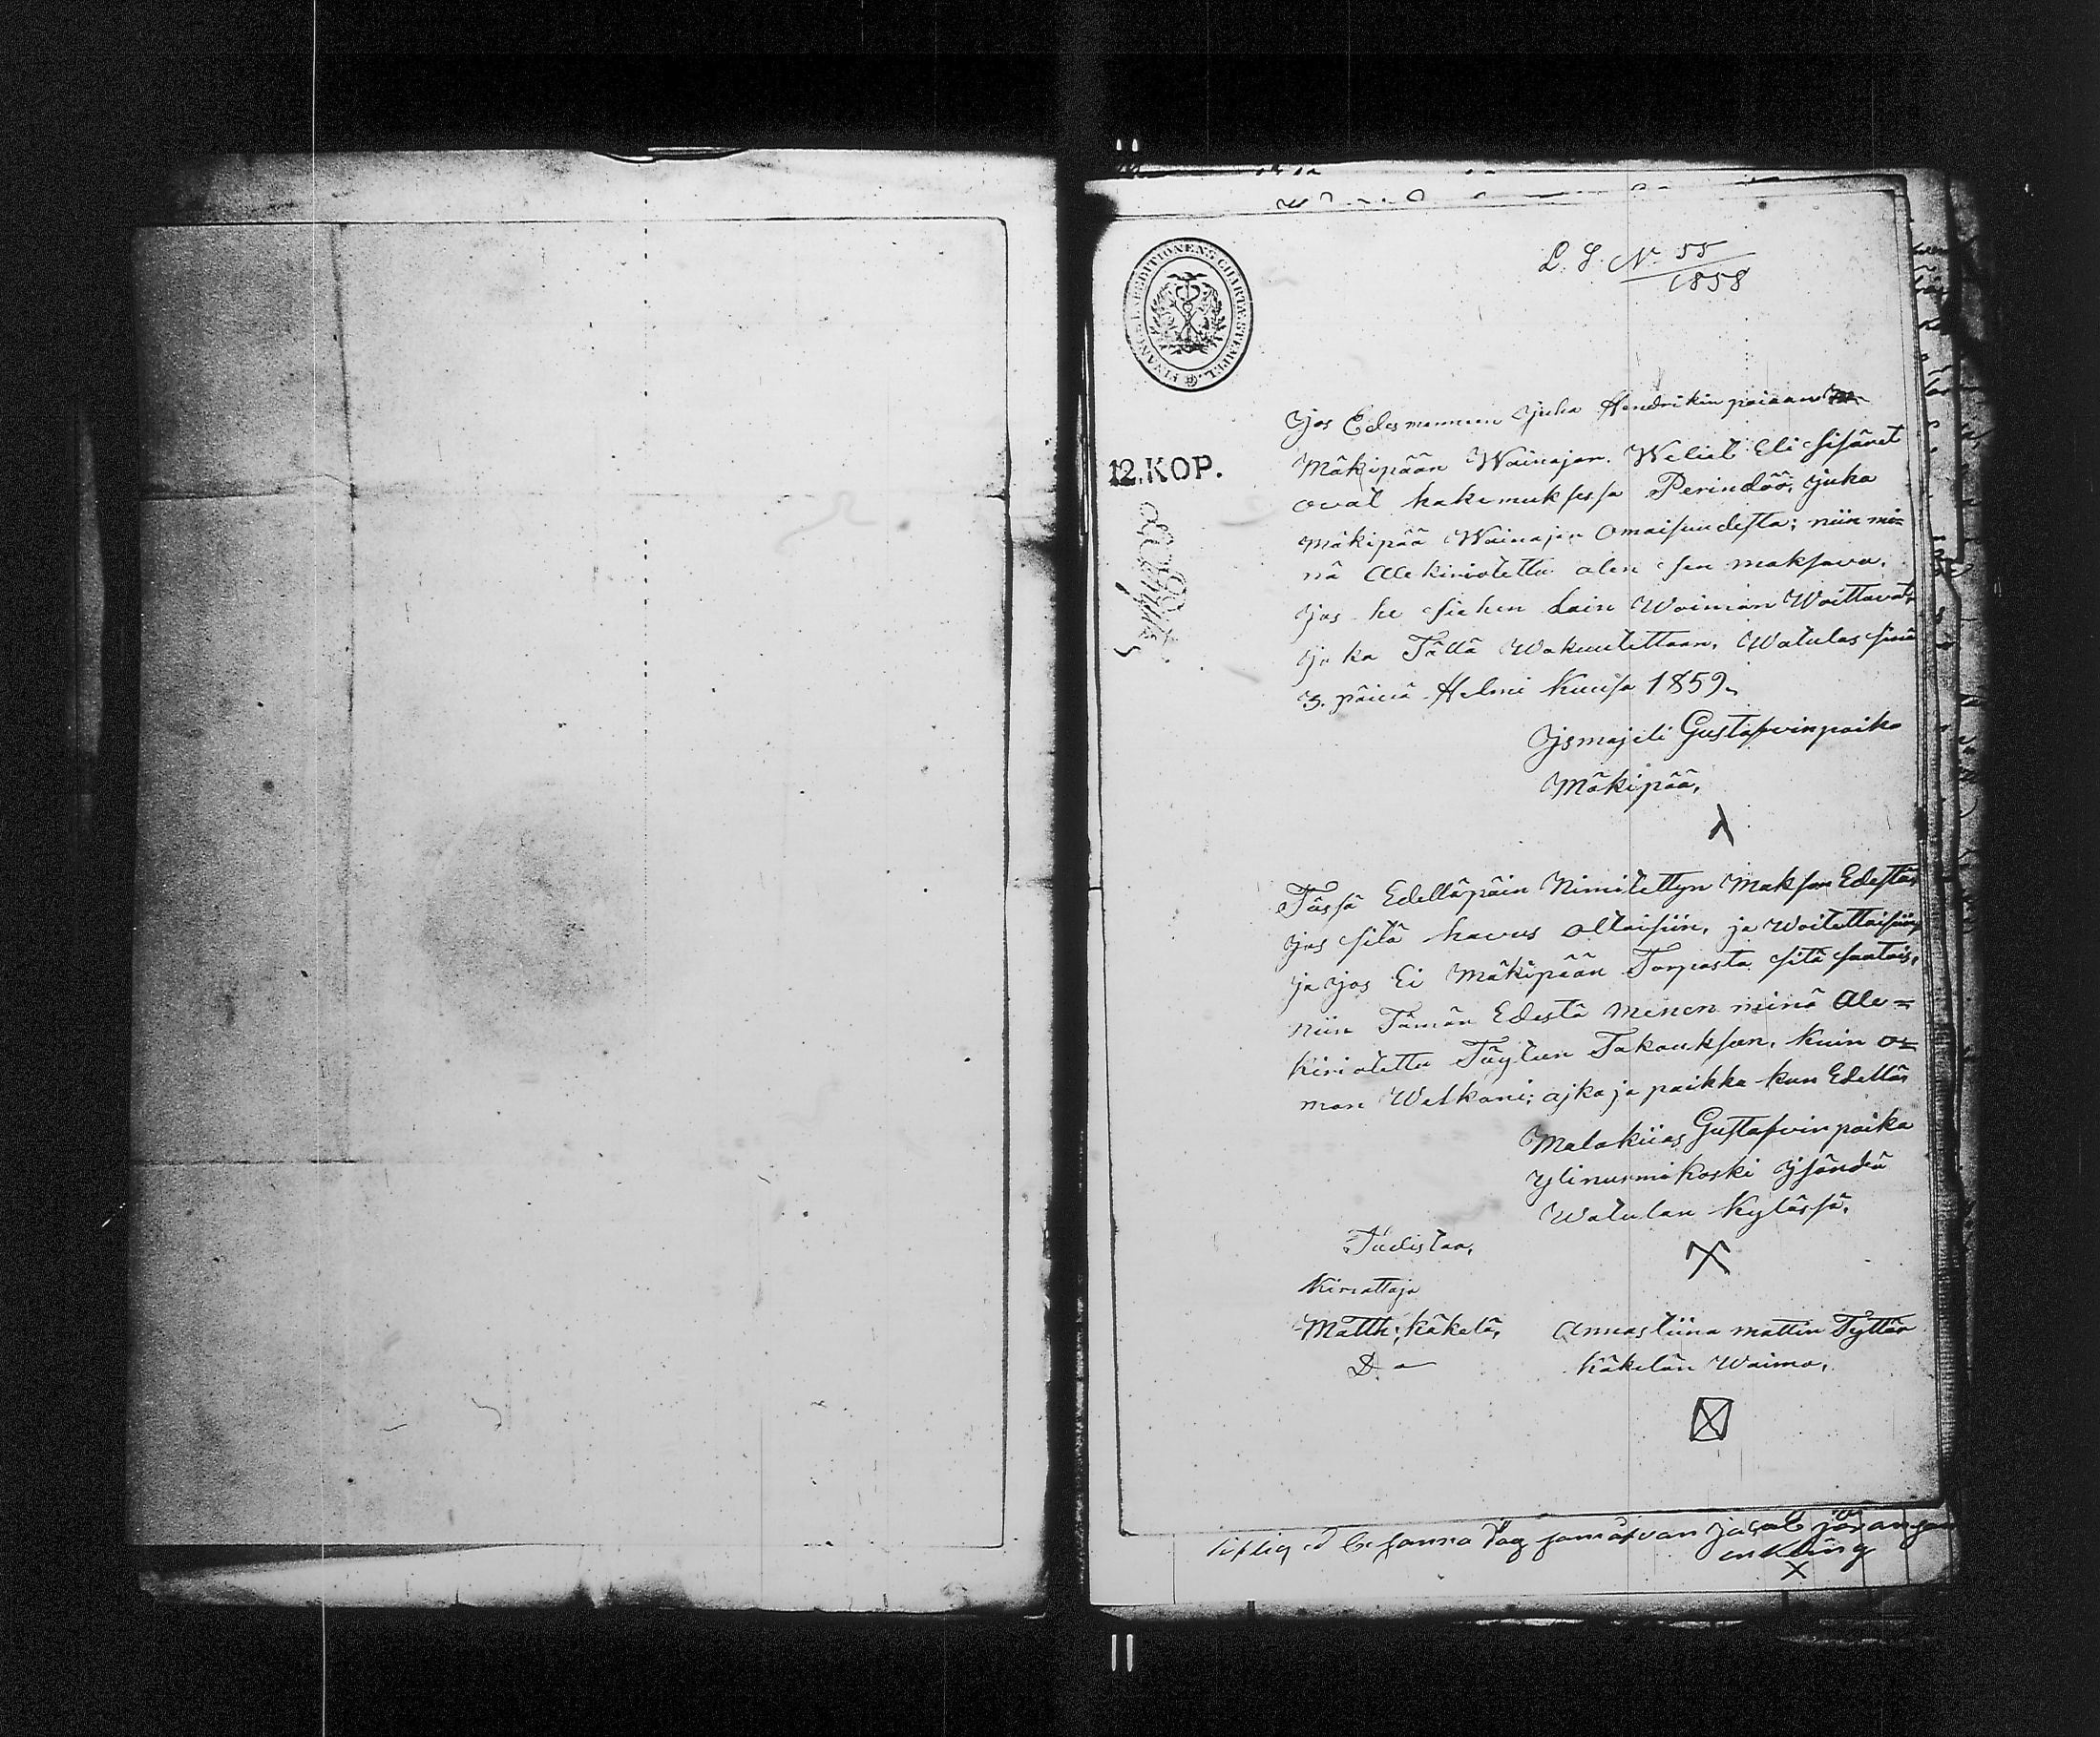 L. S. No 55
1858
FINANCE EXPEDITIONENS CHARTÆ STEMPEL.
12. KOP.
Jos Edesmennen Juha Hendrikin poiaan
Mäkipään Wainajan Weliet Eli Sisäret
ovat hakemuksessa Perindöö, Juha
Mäkipää Wainajan Omaisuudesta; niin mi=
nä Alekiriotettu olen sen maksava.
Jos he siehen Lain Woiman Woittavat,
Joka Tällä Wakuutettaan, Watulas sinä
3. päivä Helmi Kuusa 1859.
Ismajeli Gustafvinpoika
Mäkipää,
Tässä Edelläpäin Nimitettyn Makson Edestä,
jos sitä havus oltaisiin, ja Woitettaisiin,
ja jos Ei Mäkipään Torpasta sitä saatais,
niin Tämän Edestä menen minä Ale=
kiriotettu Täyteen Takaukseen, kuin o=
man Welkani; ajka ja paikka kun Edellä
Malakiias Gustafvin poika
Ylinurmikoski Isändä
Watulan Kylässä.
Tudistaa,
Kirioittaja
Matth; Käkelä,
Annastiina mattin Tyttär
Käkelän Waimo,
dag jacob